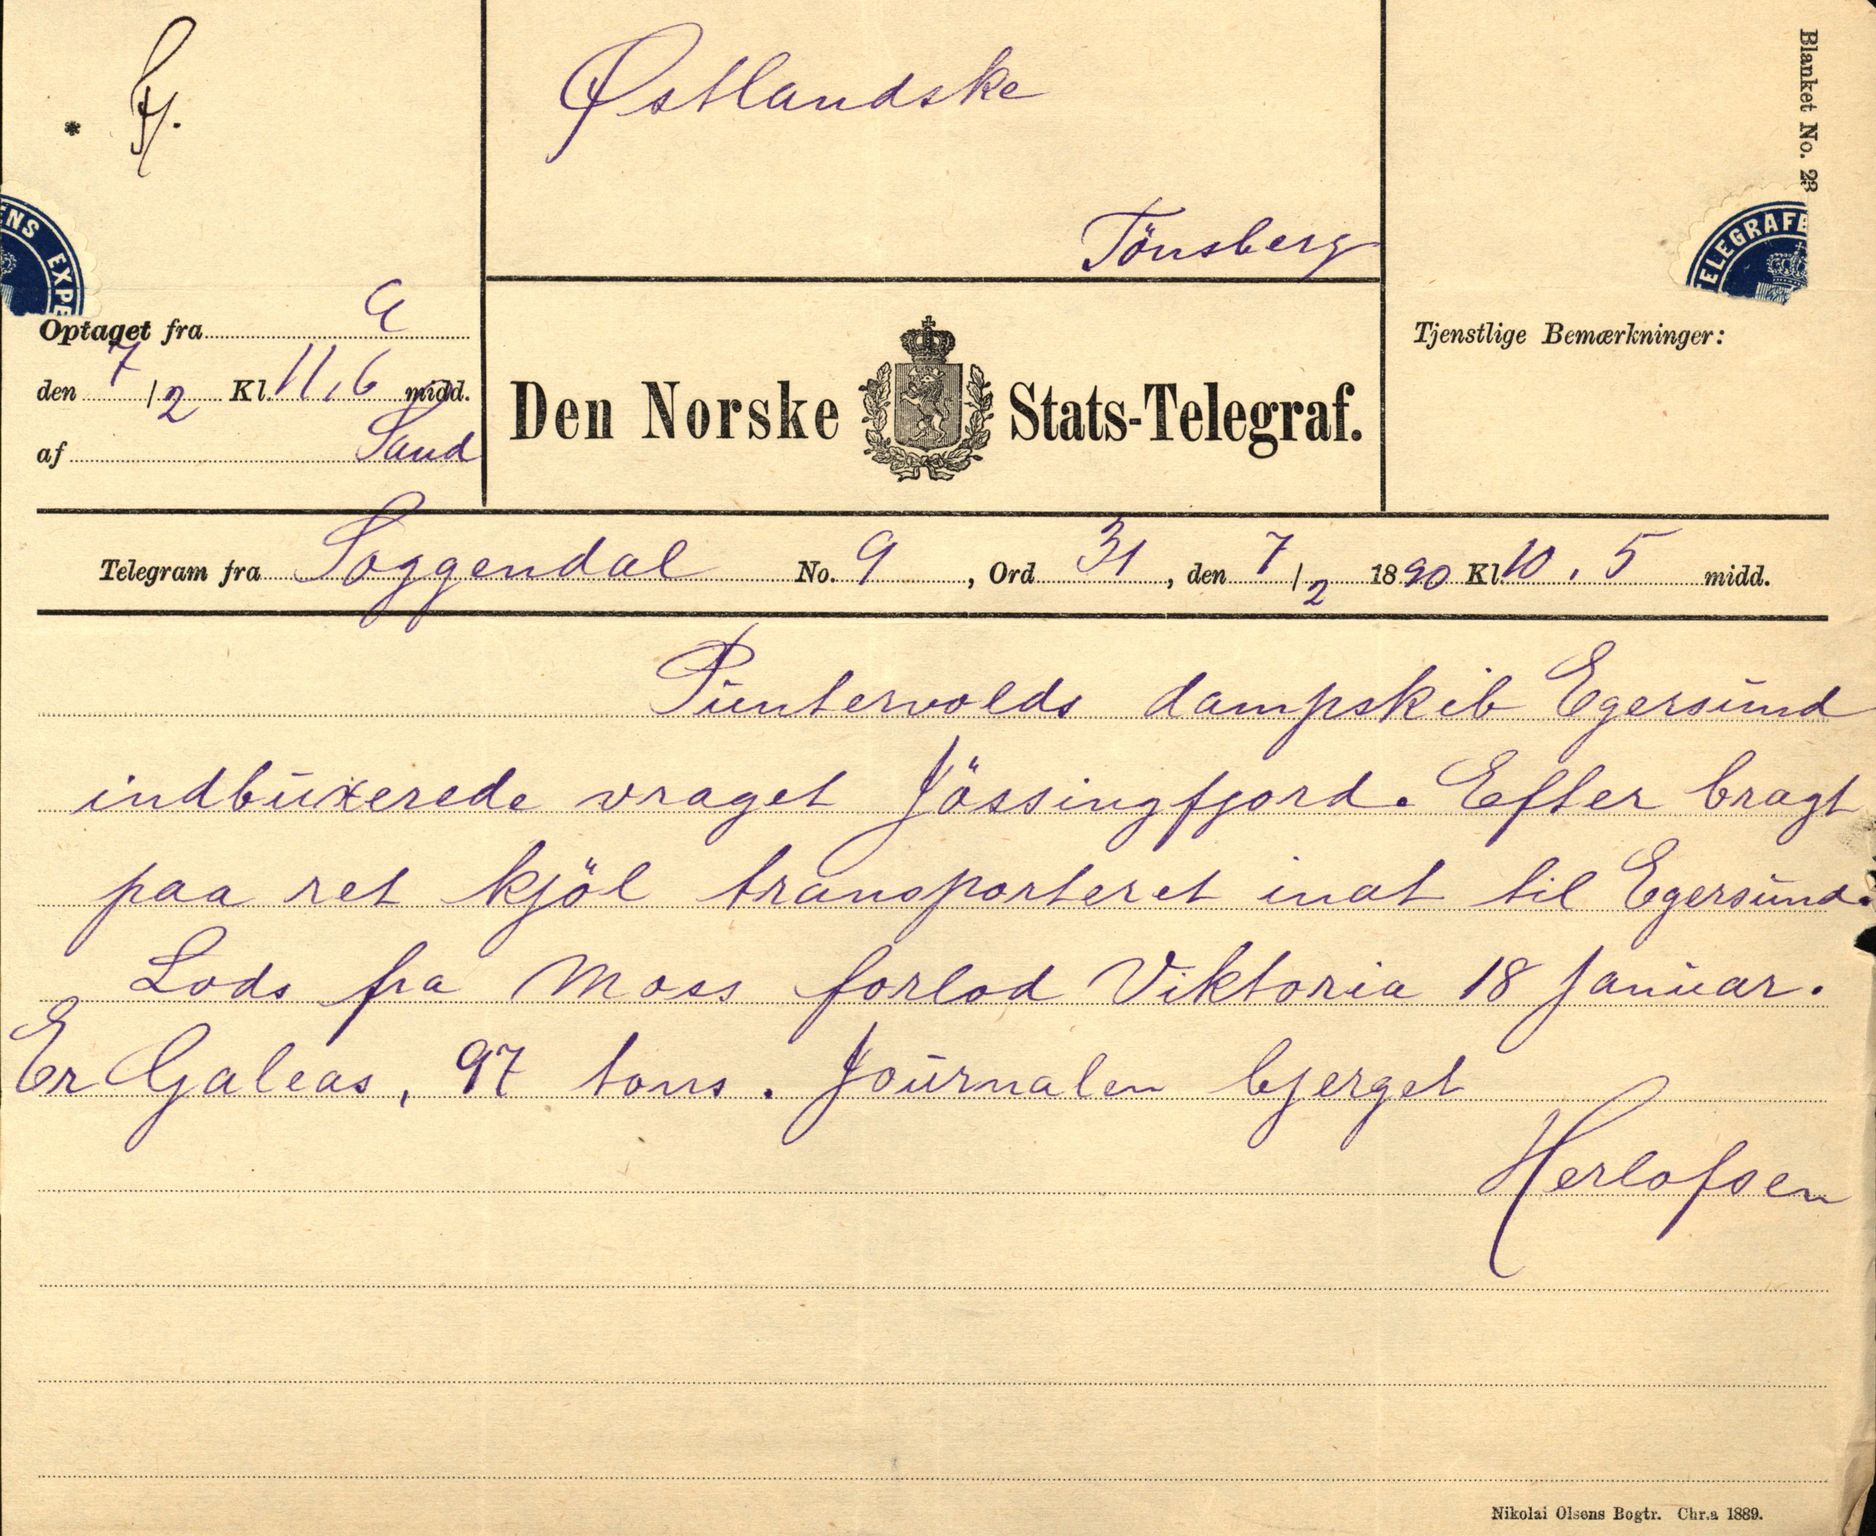 Østlandske
Tönsberg
Blanket No. 23
ENS EXPE
TELEGRAFE
Optaget fra E
den 7/2 Kl. 11,6 midd.
af Sand
Den Norske Stats-Telegraf.
Tjenstlige Bemærkninger:
Telegram fra Soggendal No. 9, Ord 31, den 7/2 1890 Kl. 10.5 midd.
Puntervolds dampskib Egersund
indbuxerede vraget Jössingfjord. Efter bragt
paa ret kjöl transporteret inat til Egersund.
Lods fra Moss forlod Viktoria 18 januar.
Er Galeas, 97 tons. Journalen bjerget
Herlofsen
Nikolai Olsens Bogtr. Chr.a 1889.